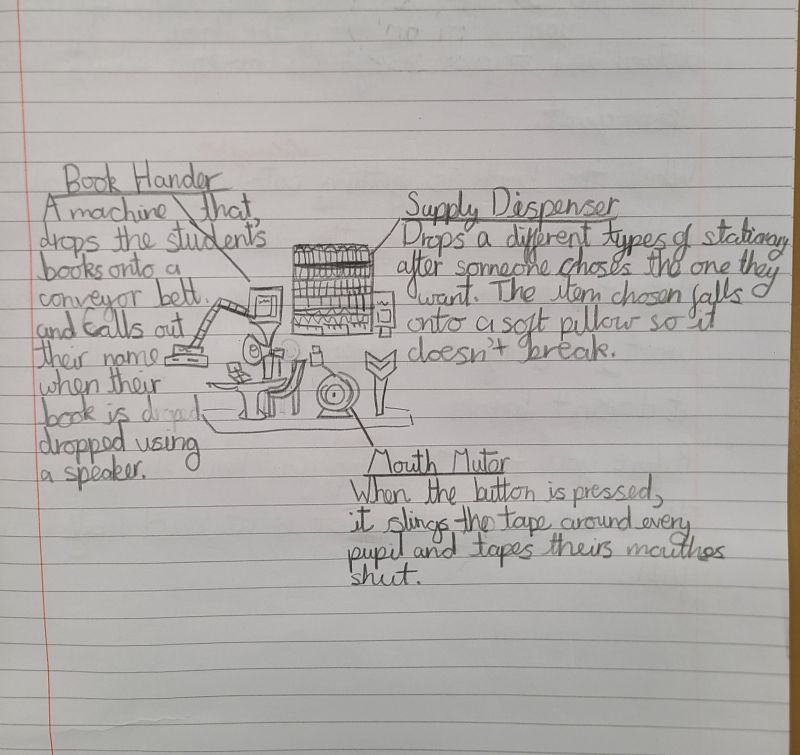 Book Hander
A machine that,
drops the students
books onto a
conveyor belt.
and calls out
their name
when their
book is droped,
dropped using
a speaker.
Supply Dispenser
Drops a different types of stationary
after someone choses the one they
want. The item chosen falls
onto a soft pillow so it
doesn't break.
Mouth Mutor
When the button is pressed,
it slings the tape around every
pupil and tapes theirs mouthes
shut.